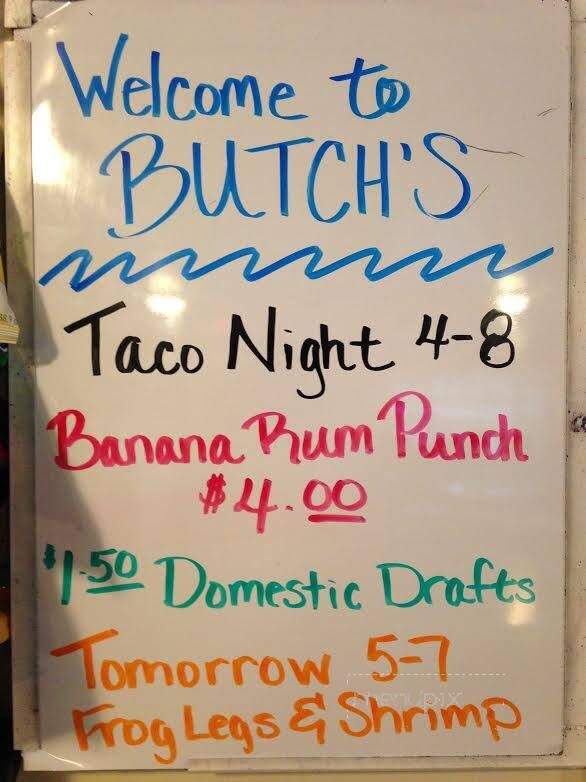 Welcome to
BUTCH'S
Taco Night 4-8
Banana Rum Punch
$4.00
$1.50 Domestic Drafts
Tomorrow 5-7
menupix
Frog Legs & Shrimp